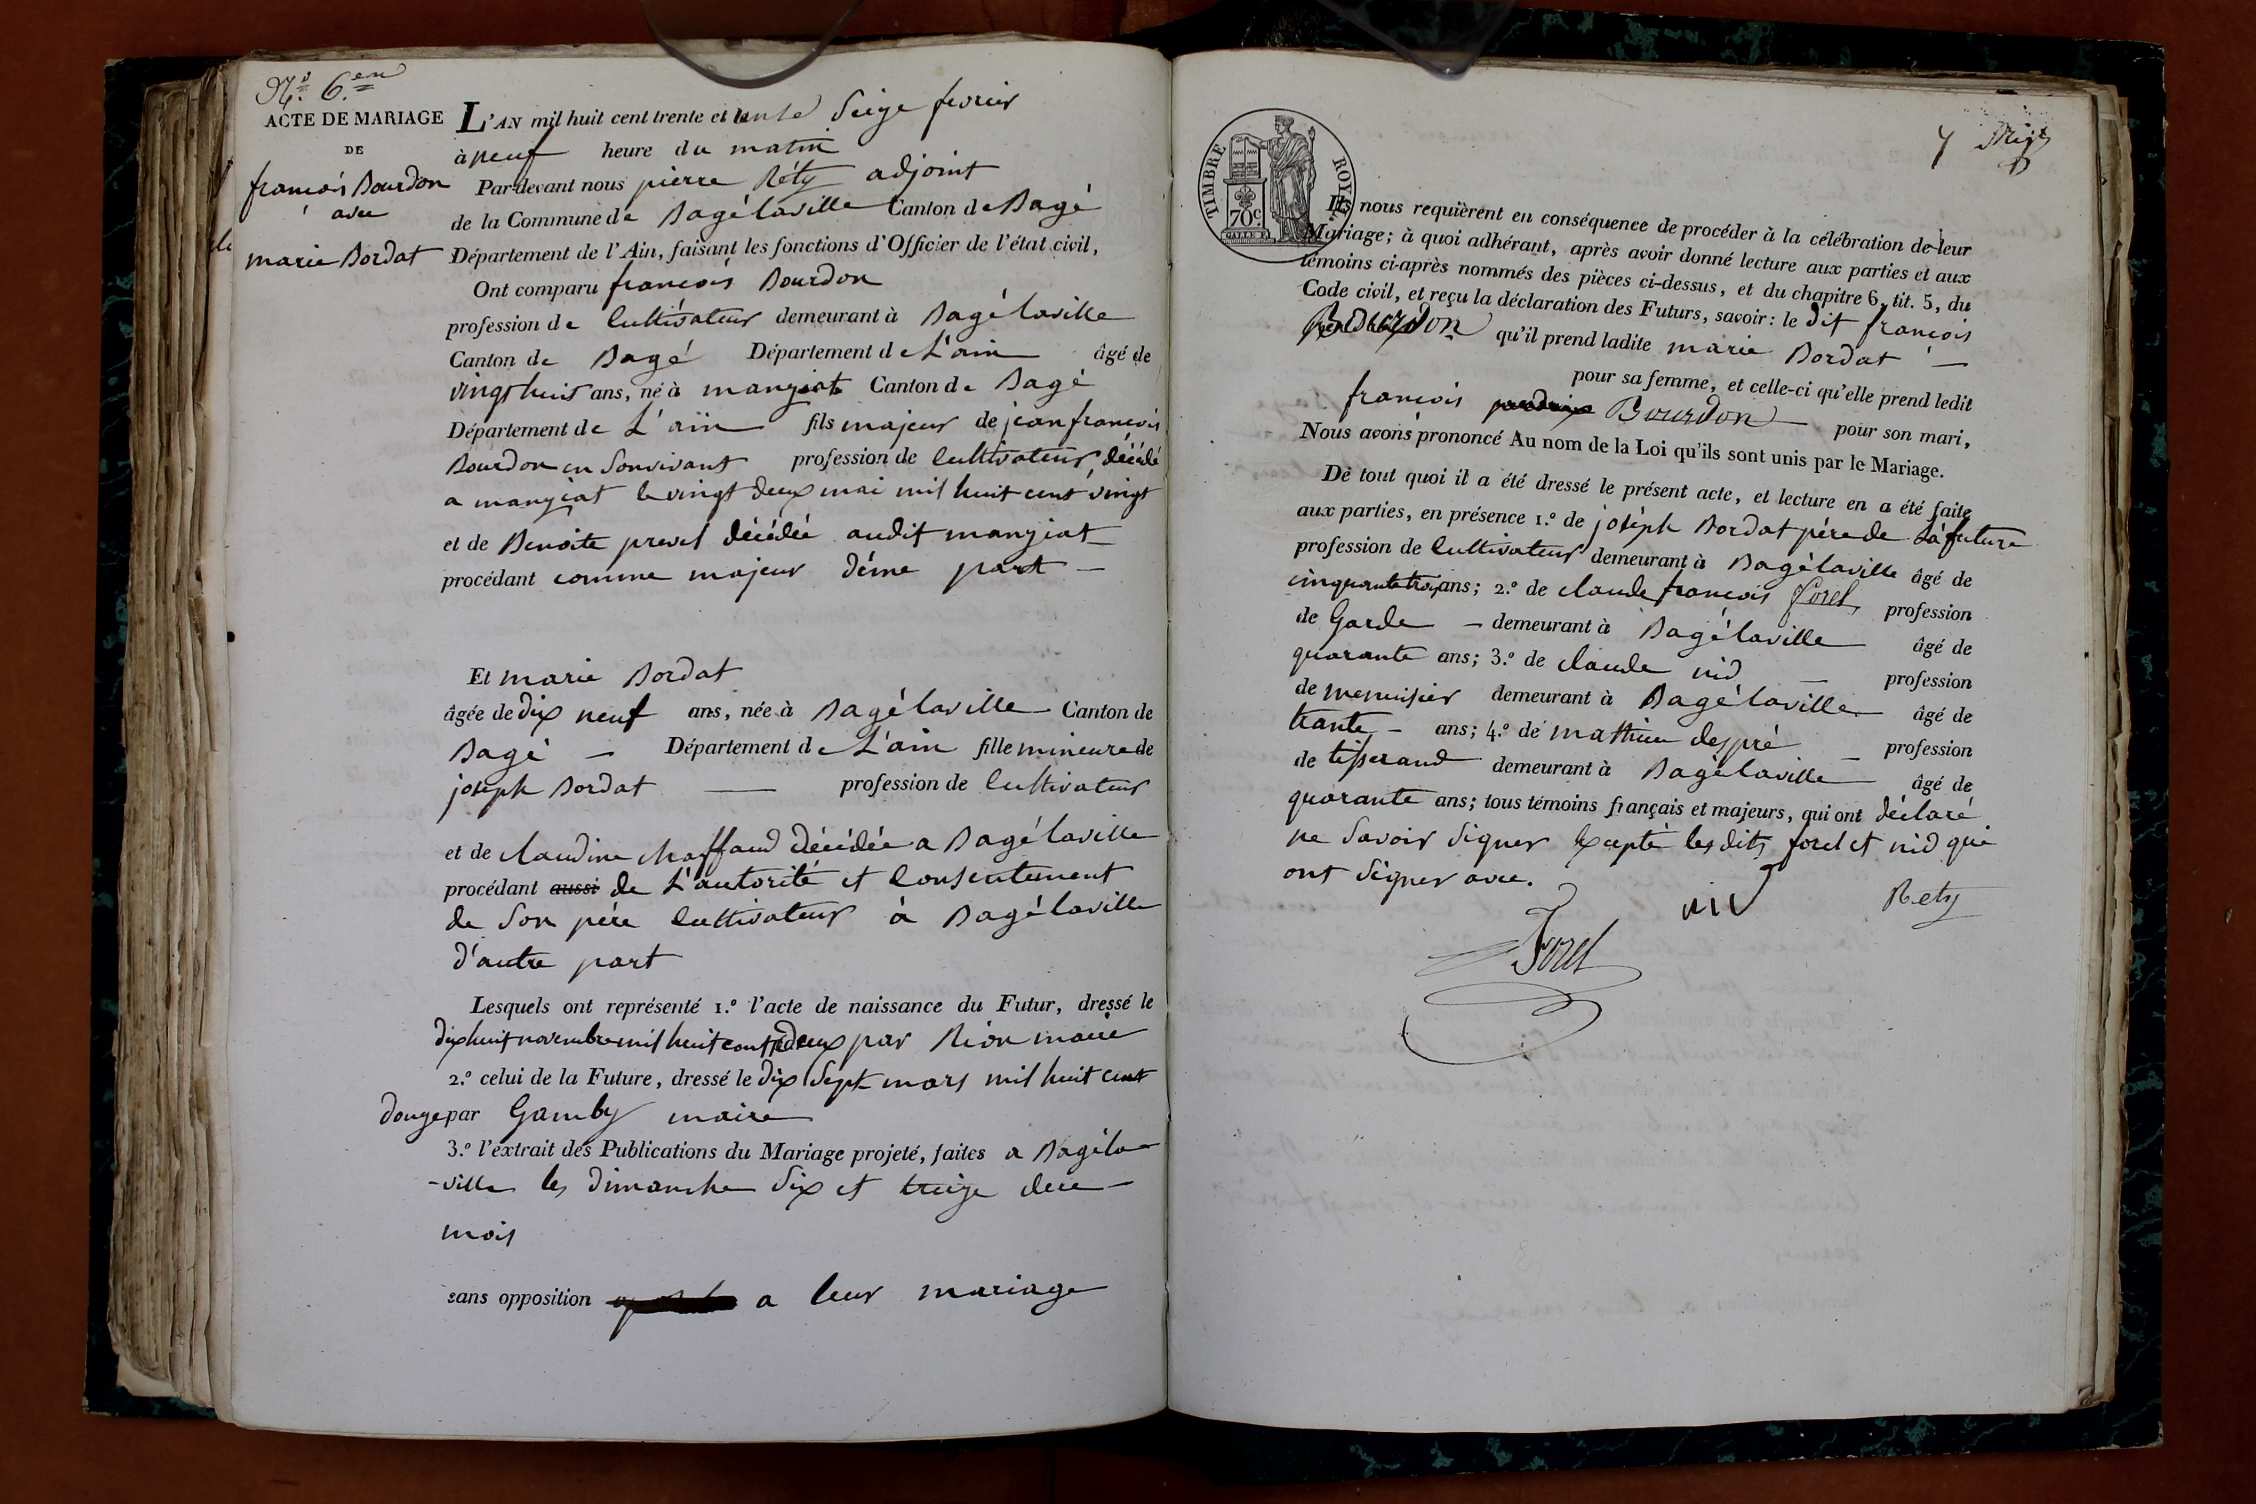 N.o 6.en
ACTE DE MARIAGE
DE
francois Bourdon
avec
marie Bordat
L'AN mil huit cent trente et un le Seize fevrier
à neuf heure du matin
Par-devant nous pierre Réty adjoint
de la Commune de Bagé laville Canton de Bagé
Département de l'Ain, faisant les fonctions d'Officier de l'état civil,
Ont comparu francois Bourdon
profession de Cultivateur demeurant à Bagé laville
Canton de Bagé Département de L'ain âgé de
vingt huit ans, né à manziat Canton de Bagé
Département de L'ain fils majeur de jean francois
Bourdon en Sonvivant profession de Cultivateur, décédé
a manziat le vingt deux mai mil huit cent vingt
et de Benoite prevel décédée audit manziat
procédant comme majeur d'éme part
Et marie Bordat
âgée de dix neuf ans, née à Bagé laville Canton de
Bagé Département de L'ain fille mineure de
joseph Bordat profession de Cultivateur
et de claudine chaffaud décédée a Bagé laville
procédant aussi de L'autorité et Consentement
de Son pére Cultivateur à Bagé laville
d'autre part
Lesquels ont représenté 1.° l'acte de naissance du Futur, dressé le
dixhuit novembre mil huit cent deux par Rion maire
2.° celui de la Future, dressé le dix Sept mars mil huit cent
douze par Gamby maire
3.° l'extrait des Publications du Mariage projeté, faites a Bagéla
-ville les dimanche Six et treize dece
mois
sans opposition a leur mariage
7
TIMBRE ROYAL
70c
Ils nous requièrent en conséquence de procéder à la célébration de leur
Mariage; à quoi adhérant, après avoir donné lecture aux parties et aux
témoins ci-après nommés des pièces ci-dessus, et du chapitre 6, tit. 5, du
Code civil, et reçu la déclaration des Futurs, savoir: le dit francois
Bourdon qu'il prend ladite marie Bordat
pour sa femme, et celle-ci qu'elle prend ledit
francois Bourdon pour son mari,
Nous avons prononcé Au nom de la Loi qu'ils sont unis par le Mariage.
De tout quoi il a été dressé le présent acte, et lecture en a été faite
aux parties, en présence 1.° de joséph Bordat pére de La future
profession de Cultivateur demeurant à Bagé laville âgé de
cinquante trois ans; 2.° de claude francois forel profession
de Garde demeurant à Bagé laville âgé de
quarante ans; 3.° de claude nid profession
de menuisier demeurant à Bagé laville âgé de
trante ans; 4.° de mathieu despré profession
de tisserand demeurant à Bagé laville âgé de
quarante ans; tous témoins français et majeurs, qui ont déclaré
ne Savoir Signer Excepté les dits forel et nid qui
ont Signer avec.
nid
Rety
Forel